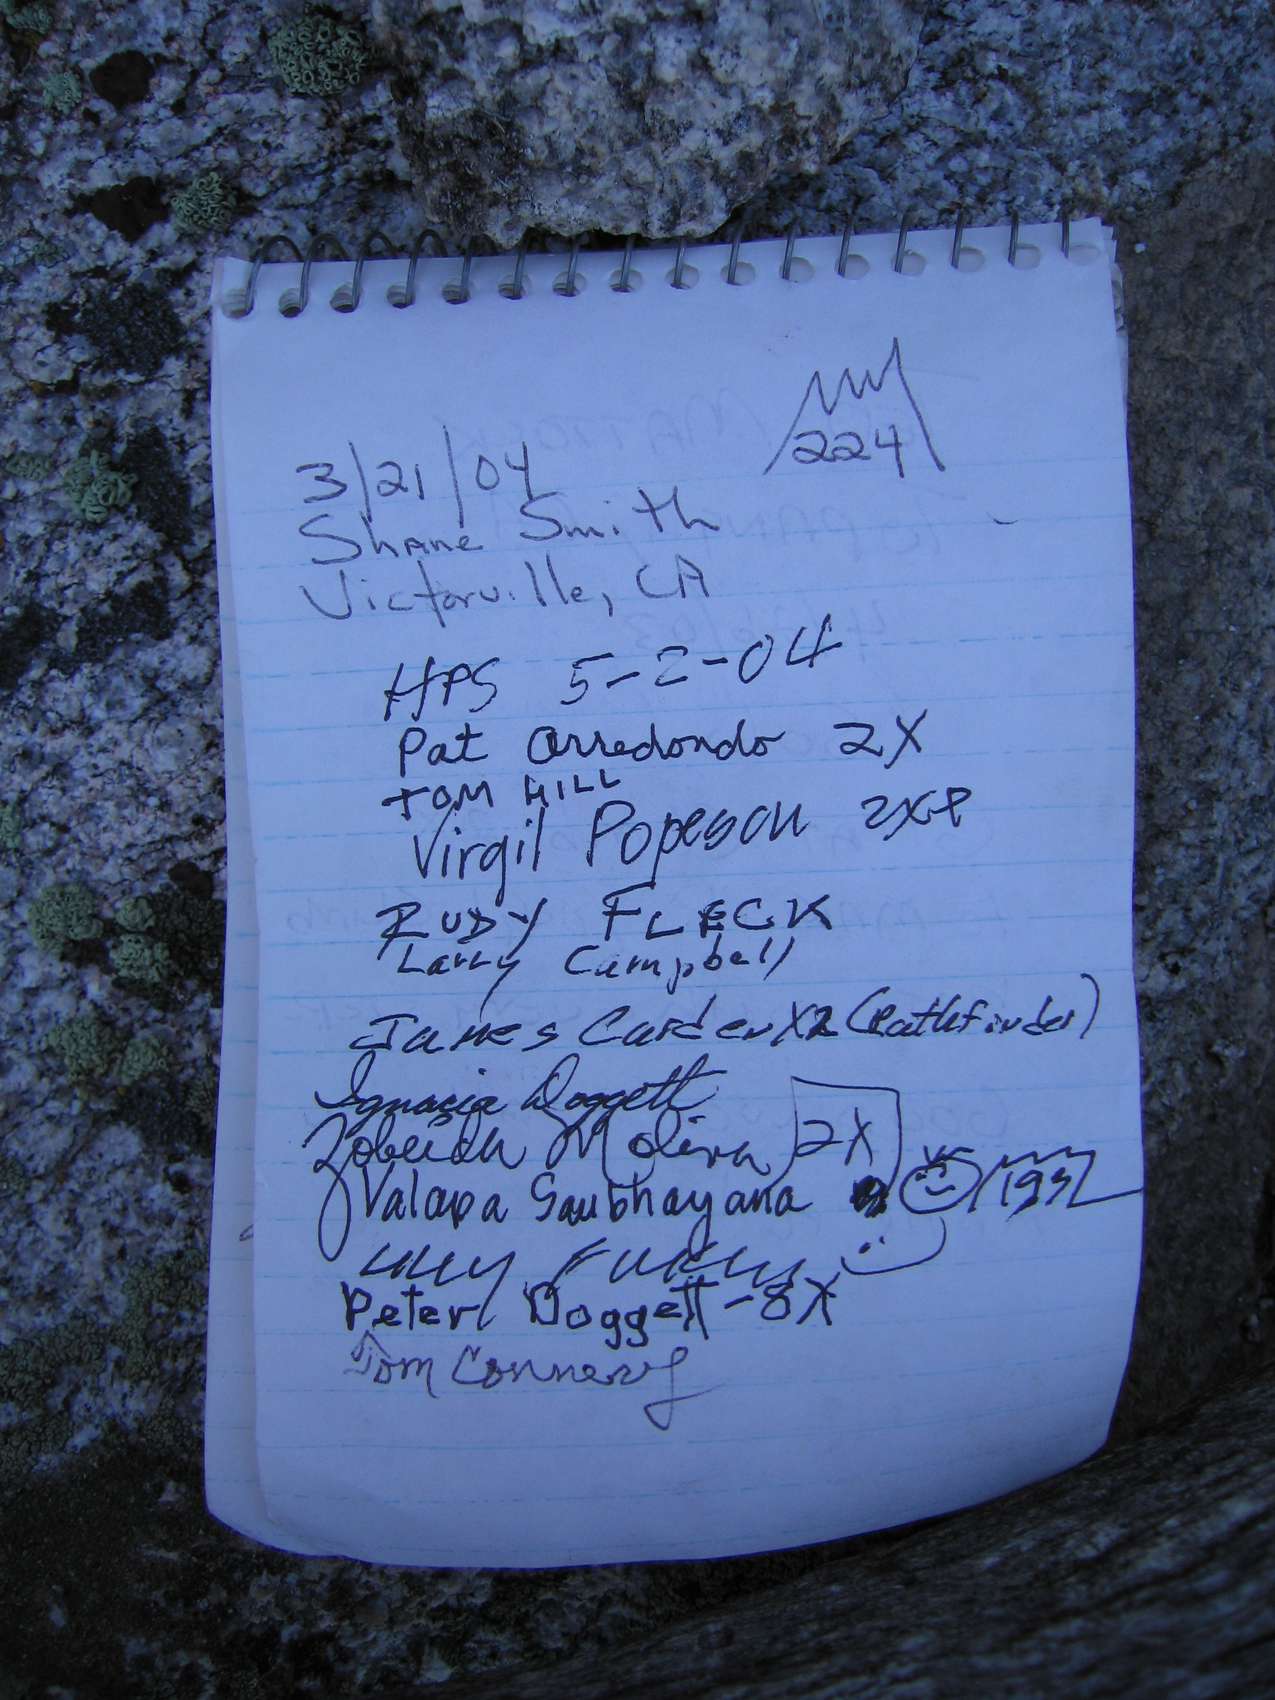 224
3/21/04
Shane Smith
Victorville, CA
HPS 5-2-04
Pat Arredondo 2X
TOM HILL
Virgil Popeson 2X
RUDY FLECK
Larry Campbell
James Carden X2 (Pathfinder)
Ignacia Doggett
Zobeida Molina 2X
Valapa Saubhayana
Peter Doggett - 8X
Tom Connery